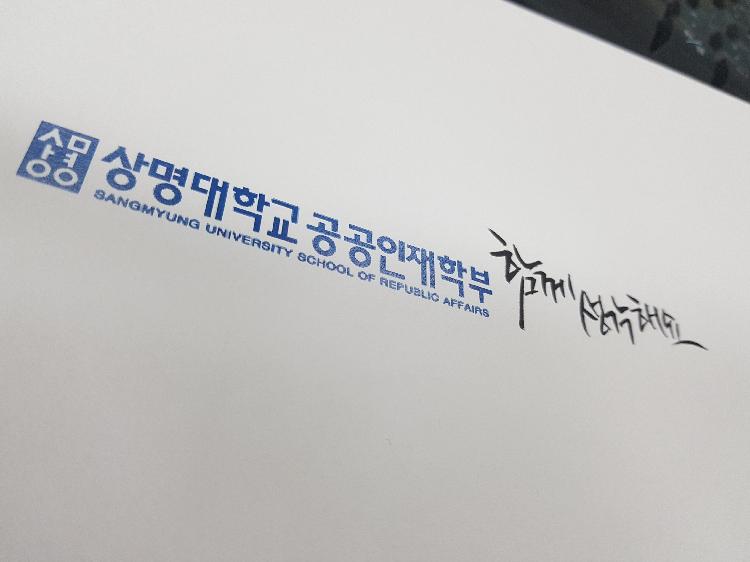 상명 상명대학교 공공인재학부 함께 생각해요
SANGMYUNG UNIVERSITY SCHOOL OF REPUBLIC AFFAIRS